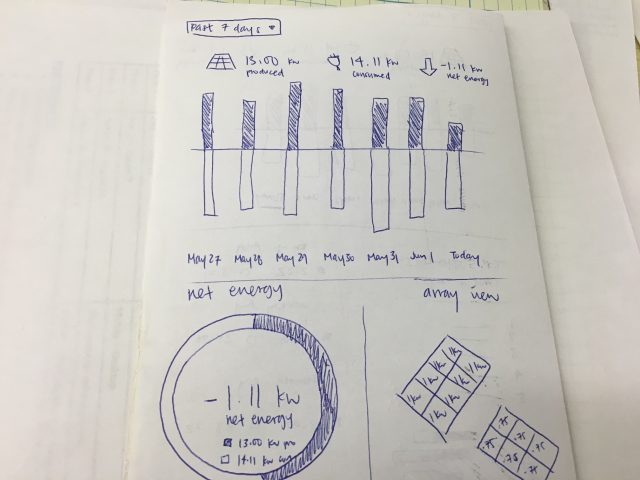 Past 7 days
13.00 kw
produced
14.11 kw
consumed
-1.11 kw
net energy
May 27 May 28 May 29 May 30 May 31 Jun 1 Today
net energy
array view
-1.11 kw
net energy
13.00 kw pro
14.11 kw
.75 .75
.75 .75
.75